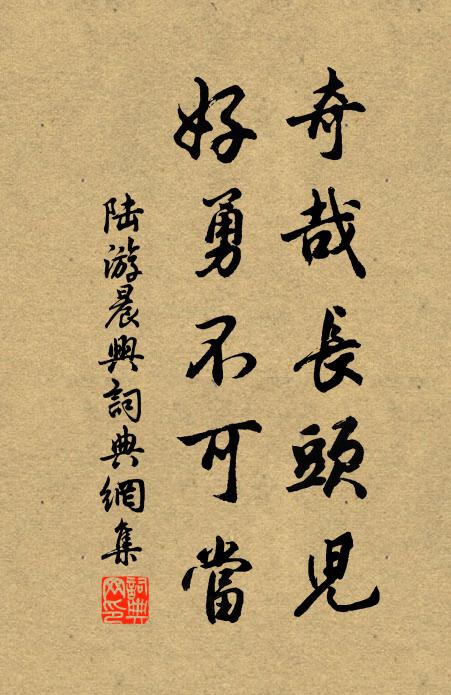 奇哉長頭兒
好勇不可當
陆游晨興詞典網集
詞典网印